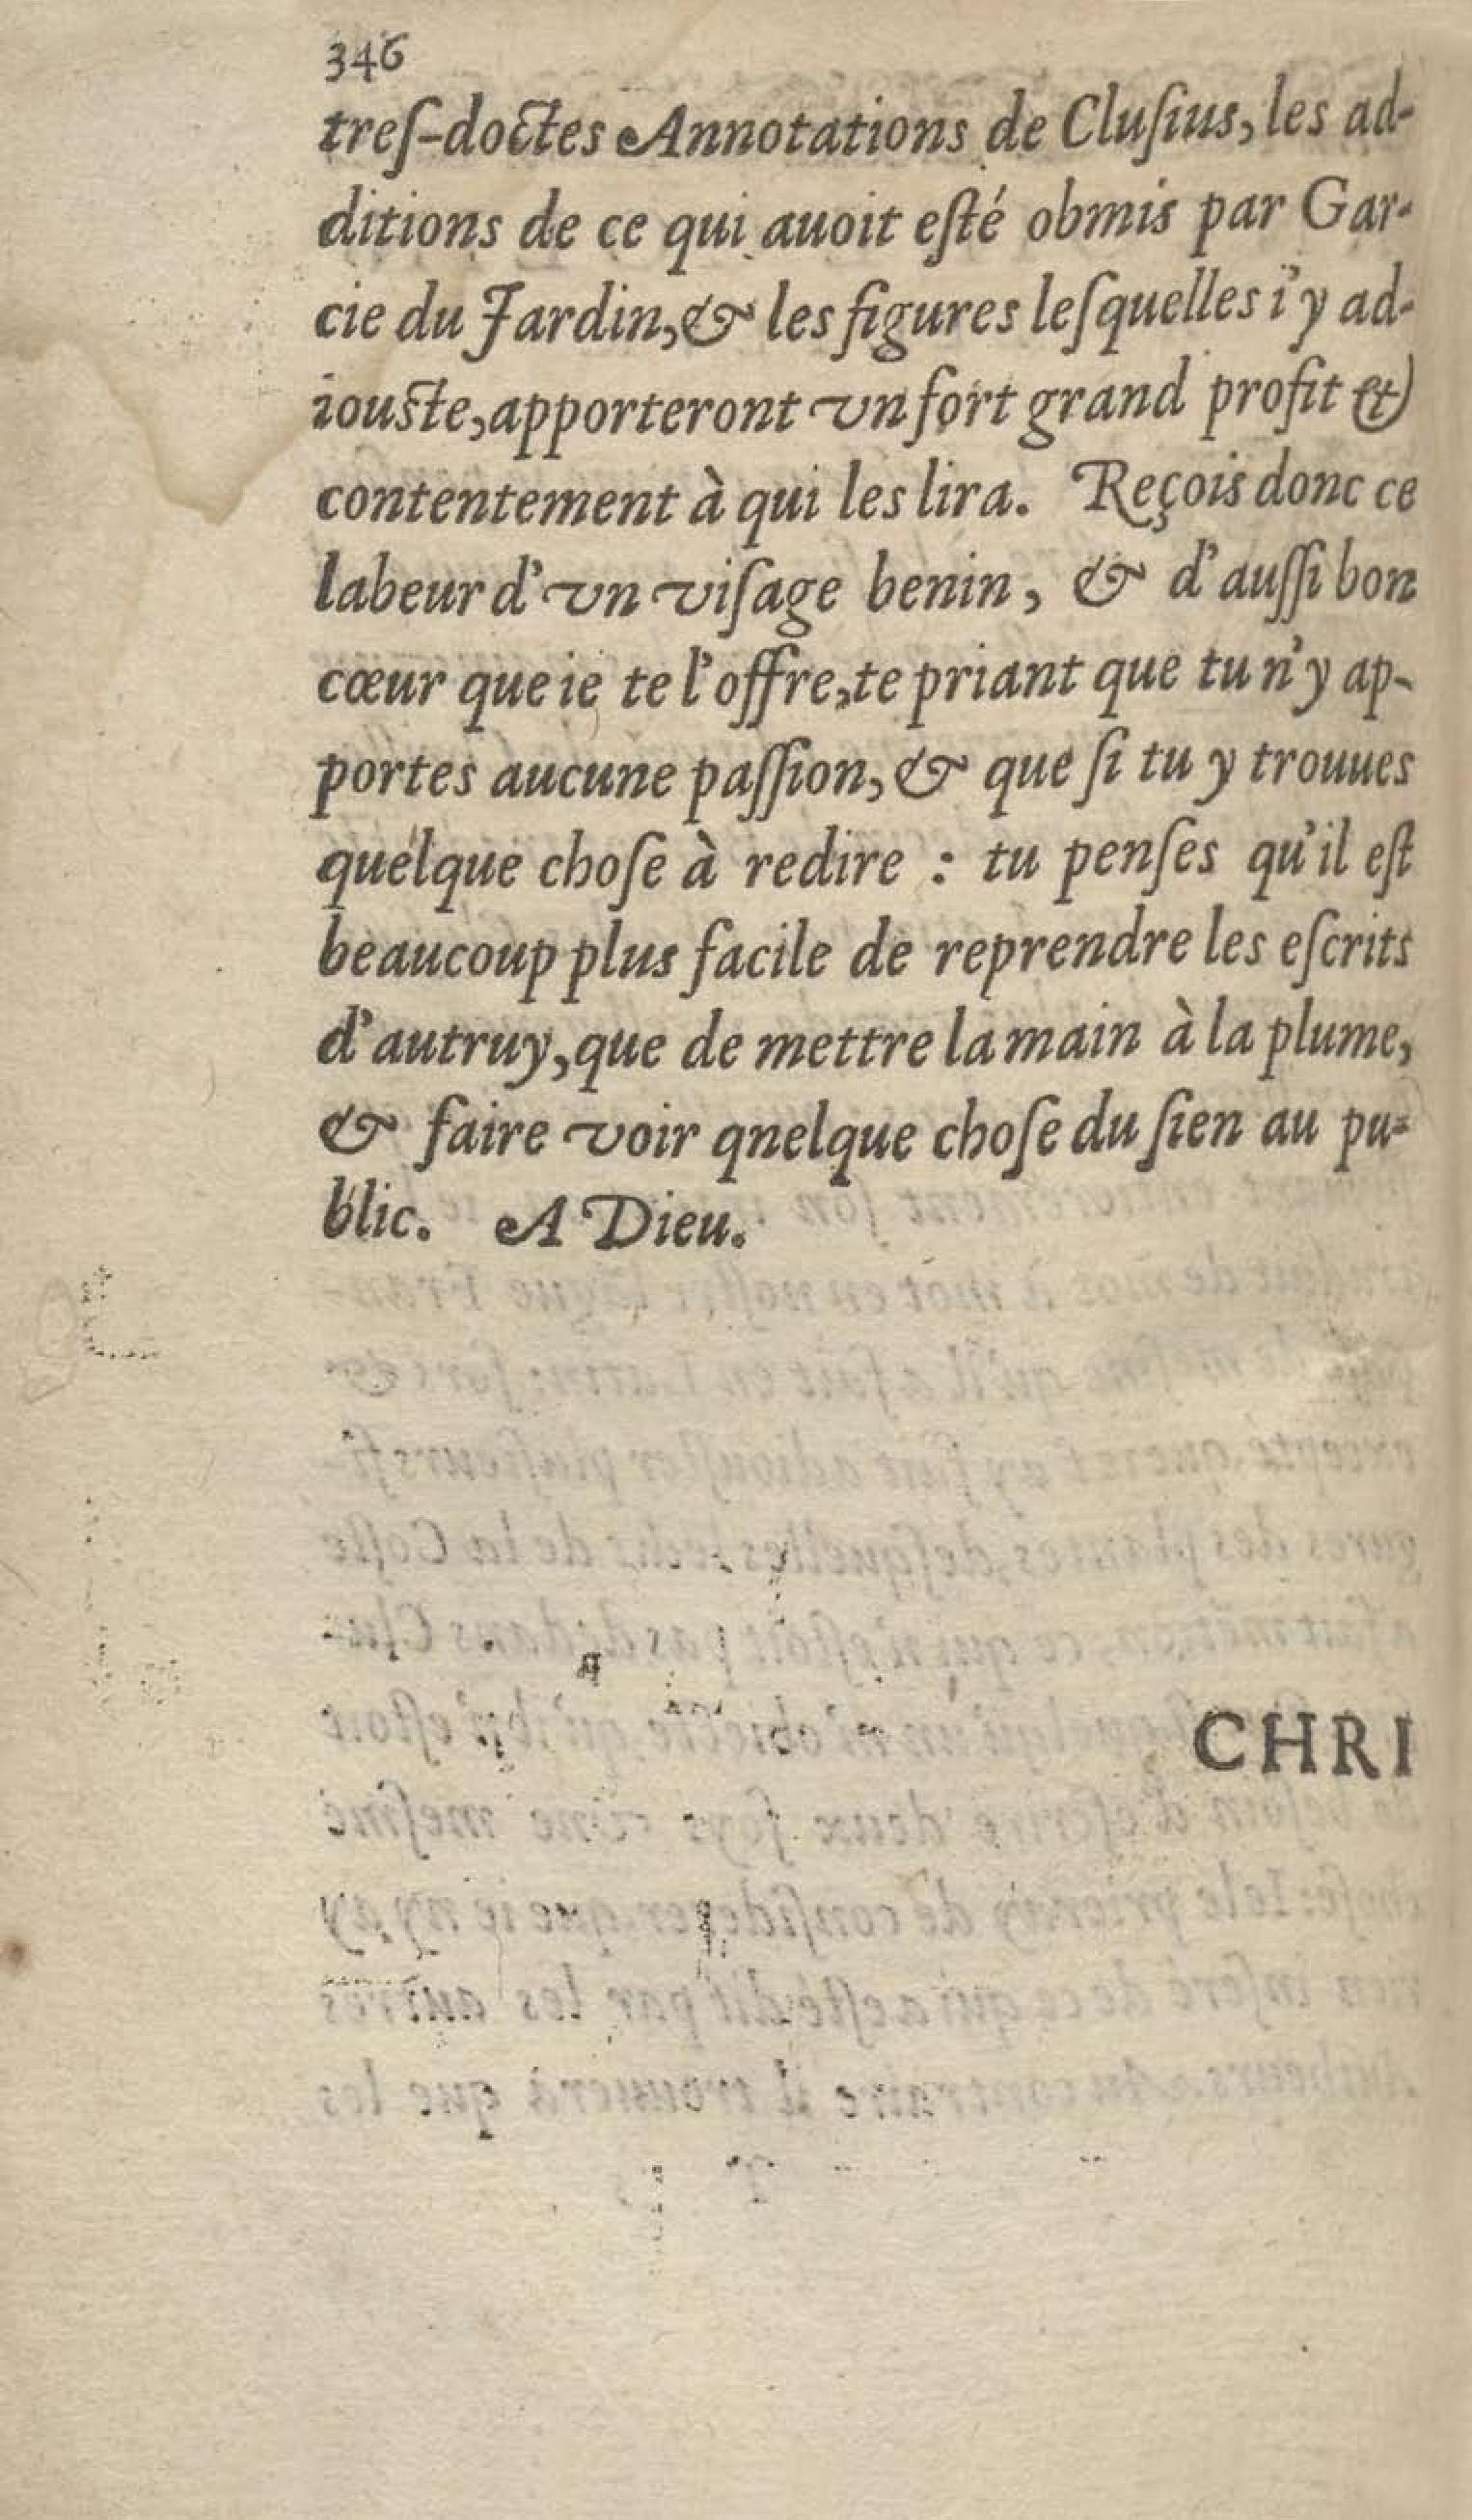 346
treſ-doctes Annotations de Cluſius, les ad-
ditions de ce qui auoit eſté obmis par Gar-
cie du Jardin, & les figures leſquelles i'y ad-
iouſte, apporteront vn fort grand profit &
contentement à qui les lira. Reçois donc ce
labeur d'vn viſage benin, & d'auſſi bon
cœur que ie te l'offre, te priant que tu n'y ap-
portes aucune paſſion, & que ſi tu y trouues
quelque choſe à redire : tu penſes qu'il eſt
beaucoup plus facile de reprendre les eſcrits
d'autruy, que de mettre la main à la plume,
& faire voir qnelque choſe du ſien au pu-
blic. A Dieu.
CHRI